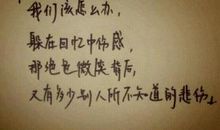 我们该怎么办,
躲在回忆中伤感,
那绝色微笑背后,
又有多少别人所不知道的悲伤。